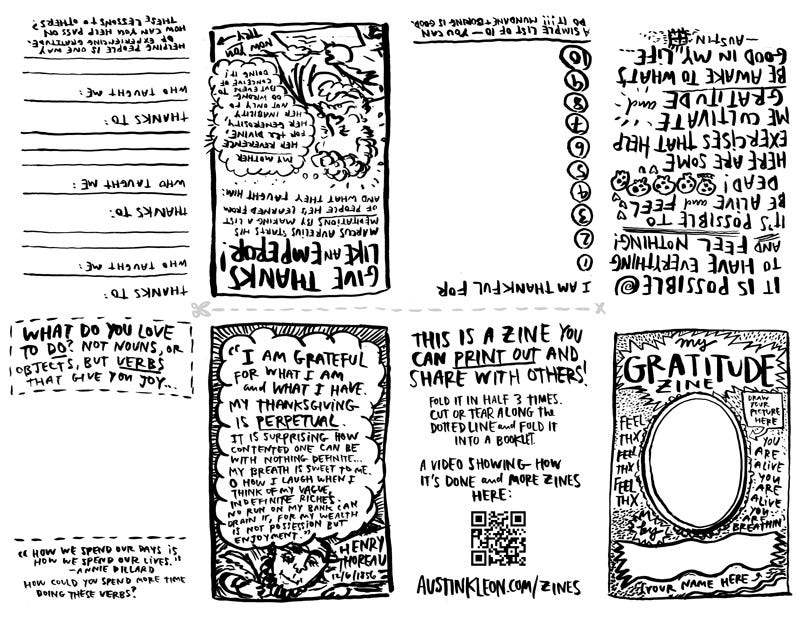 THANKS TO:
WHO TAUGHT ME:
THANKS TO:
WHO TAUGHT ME:
THANKS TO:
WHO TAUGHT ME:
HELPING PEOPLE IS ONE WAY
OF EXPERIENCING GRATITUDE.
HOW CAN YOU HELP PASS ON
THESE LESSONS TO OTHERS?
GIVE THANKS
LIKE AN EMPEROR!
MARCUS AURELIUS STARTS HIS
MEDITATIONS BY MAKING A LIST
OF PEOPLE HE'S LEARNED FROM
AND WHAT THEY TAUGHT HIM:
MY MOTHER
HER REVERENCE
FOR THE DIVINE,
HER GENEROSITY,
HER INABILITY
NOT ONLY TO
DO WRONG
BUT EVEN TO
CONCEIVE OF
DOING IT!
NOW YOU
TRY
I AM THANKFUL FOR
1
2
3
4
5
6
7
8
9
10
A SIMPLE LIST OF 10 - YOU CAN
DO IT!!! MUNDANE + BORING IS GOOD.
IT IS POSSIBLE
TO HAVE EVERYTHING
AND FEEL NOTHING!
IT'S POSSIBLE TO
BE ALIVE and FEEL
DEAD!
HERE ARE SOME
EXERCISES THAT HELP
ME CULTIVATE
GRATITUDE and
BE AWAKE TO WHAT'S
GOOD IN MY LIFE...
—AUSTIN
WHAT DO YOU LOVE
TO DO? NOT NOUNS, OR
OBJECTS, BUT VERBS
THAT GIVE YOU JOY...
"HOW WE SPEND OUR DAYS IS
HOW WE SPEND OUR LIVES."
—ANNIE DILLARD
HOW COULD YOU SPEND MORE TIME
DOING THESE VERBS?
"I AM GRATEFUL
FOR WHAT I AM
and WHAT I HAVE.
MY THANKSGIVING
IS PERPETUAL.
IT IS SURPRISING HOW
CONTENTED ONE CAN BE
WITH NOTHING DEFINITE...
MY BREATH IS SWEET TO ME.
O HOW I LAUGH WHEN I
THINK OF MY VAGUE,
INDEFINITE RICHES.
NO RUN ON MY BANK CAN
DRAIN IT, FOR MY WEALTH
IS NOT POSSESSION BUT
ENJOYMENT."
HENRY
THOREAU
12/6/1856
THIS IS A ZINE YOU
CAN PRINT OUT AND
SHARE WITH OTHERS!
FOLD IT IN HALF 3 TIMES.
CUT OR TEAR ALONG the
DOTTED LINE and FOLD IT
INTO A BOOKLET.
A VIDEO SHOWING HOW
IT'S DONE and MORE ZINES
HERE:
AUSTINKLEON.COM/ZINES
my
GRATITUDE
ZINE
DRAW
YOUR
PICTURE
HERE
FEEL
THX
FEEL
THX
FEEL
THX
YOU
ARE
ALIVE
YOU
ARE
ALIVE
YOU
ARE
BREATHIN'
by
YOUR NAME HERE